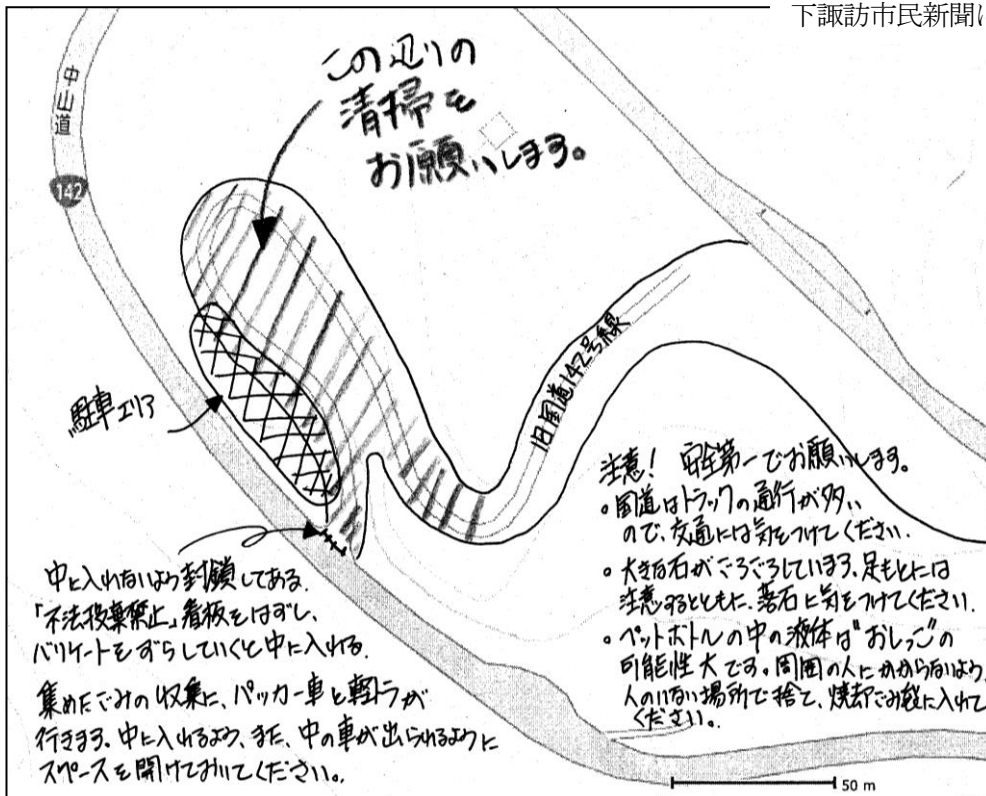 下諏訪市民新聞に
この辺りの
清掃を
お願いします。
中山道
142
旧国道142号線
駐車エリア
中に入れないよう封鎖してある。
「不法投棄禁止」看板をはずし、
バリケートをずらしていくと中に入れる。
集めたごみの収集に、パッカー車と軽トラが
行きます。中に入れるよう、また、中の車が出られるように
スペースを開けておいてください。
注意! 安全第一でお願いします。
・国道はトラックの通行が多い
ので、交通には気をつけてください。
・大きな石がごろごろしています。足もとには
注意するとともに、落石に気をつけてください。
・ペットボトルの中の液体は"おしっこ"の
可能性大です。周囲の人にかからないよう、
人のいない場所で捨て、焼却ごみ袋に入れて
ください。
50 m